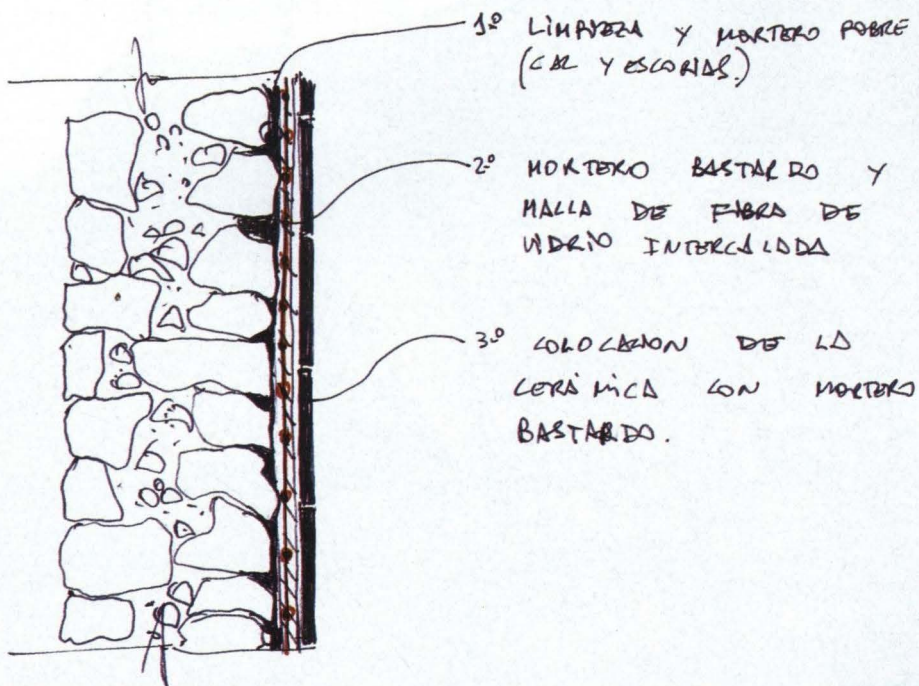 1º LIMPIEZA Y MORTERO POBRE
(CAL Y ESCORIAS.)
2º MORTERO BASTARDO Y
MALLA DE FIBRA DE
VIDRIO INTERCALADA
3º COLOCACION DE LA
CERÁMICA CON MORTERO
BASTARDO.